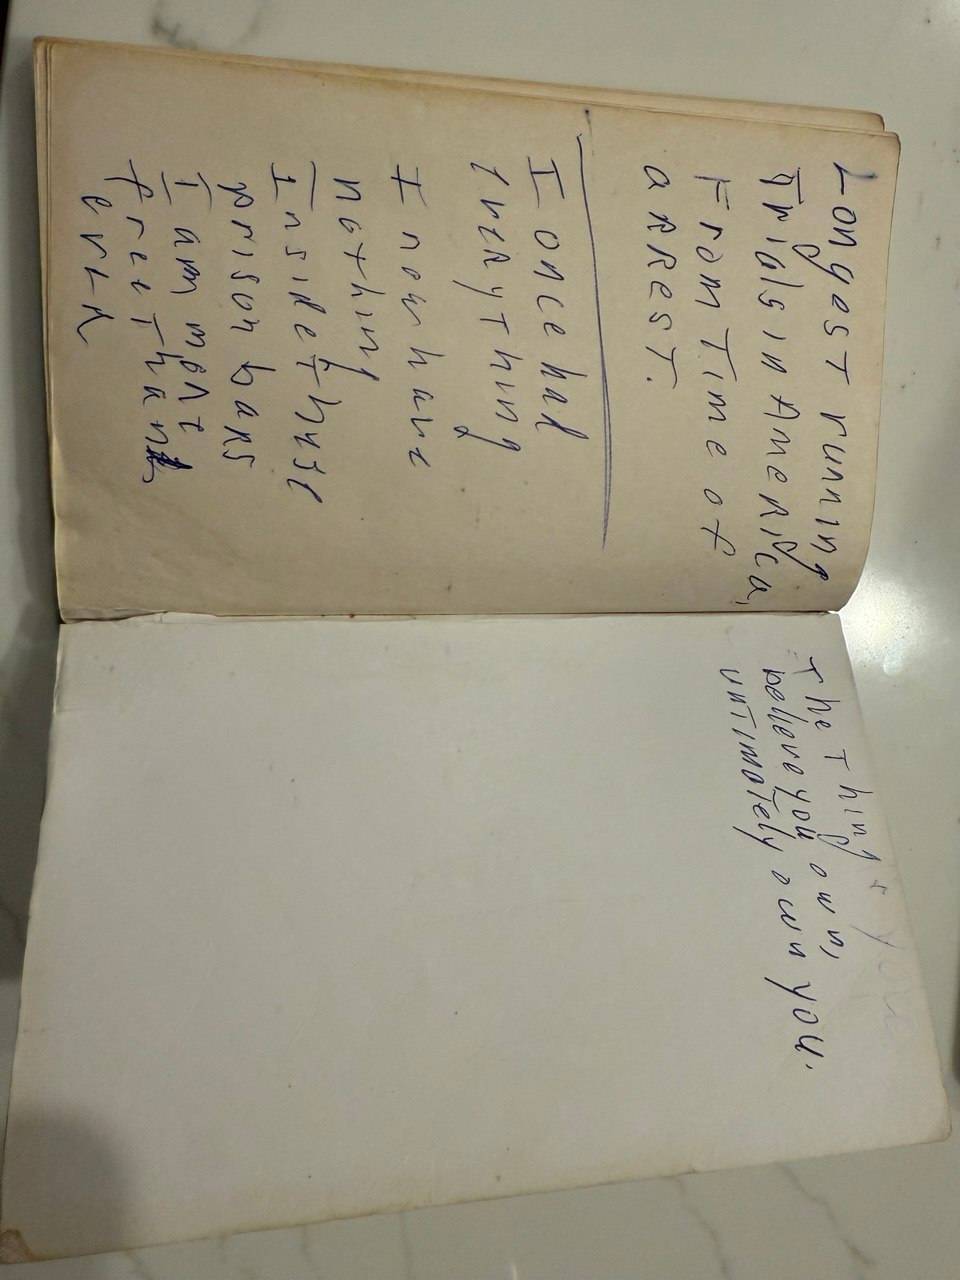 Longest running
Trials in America,
From Time of
aRREST.
I once had
EVERYThing
I now have
nothing
Inside These
prison bars
I am more
free Than
EVER
The Things you
believe you own,
unTimately own you.